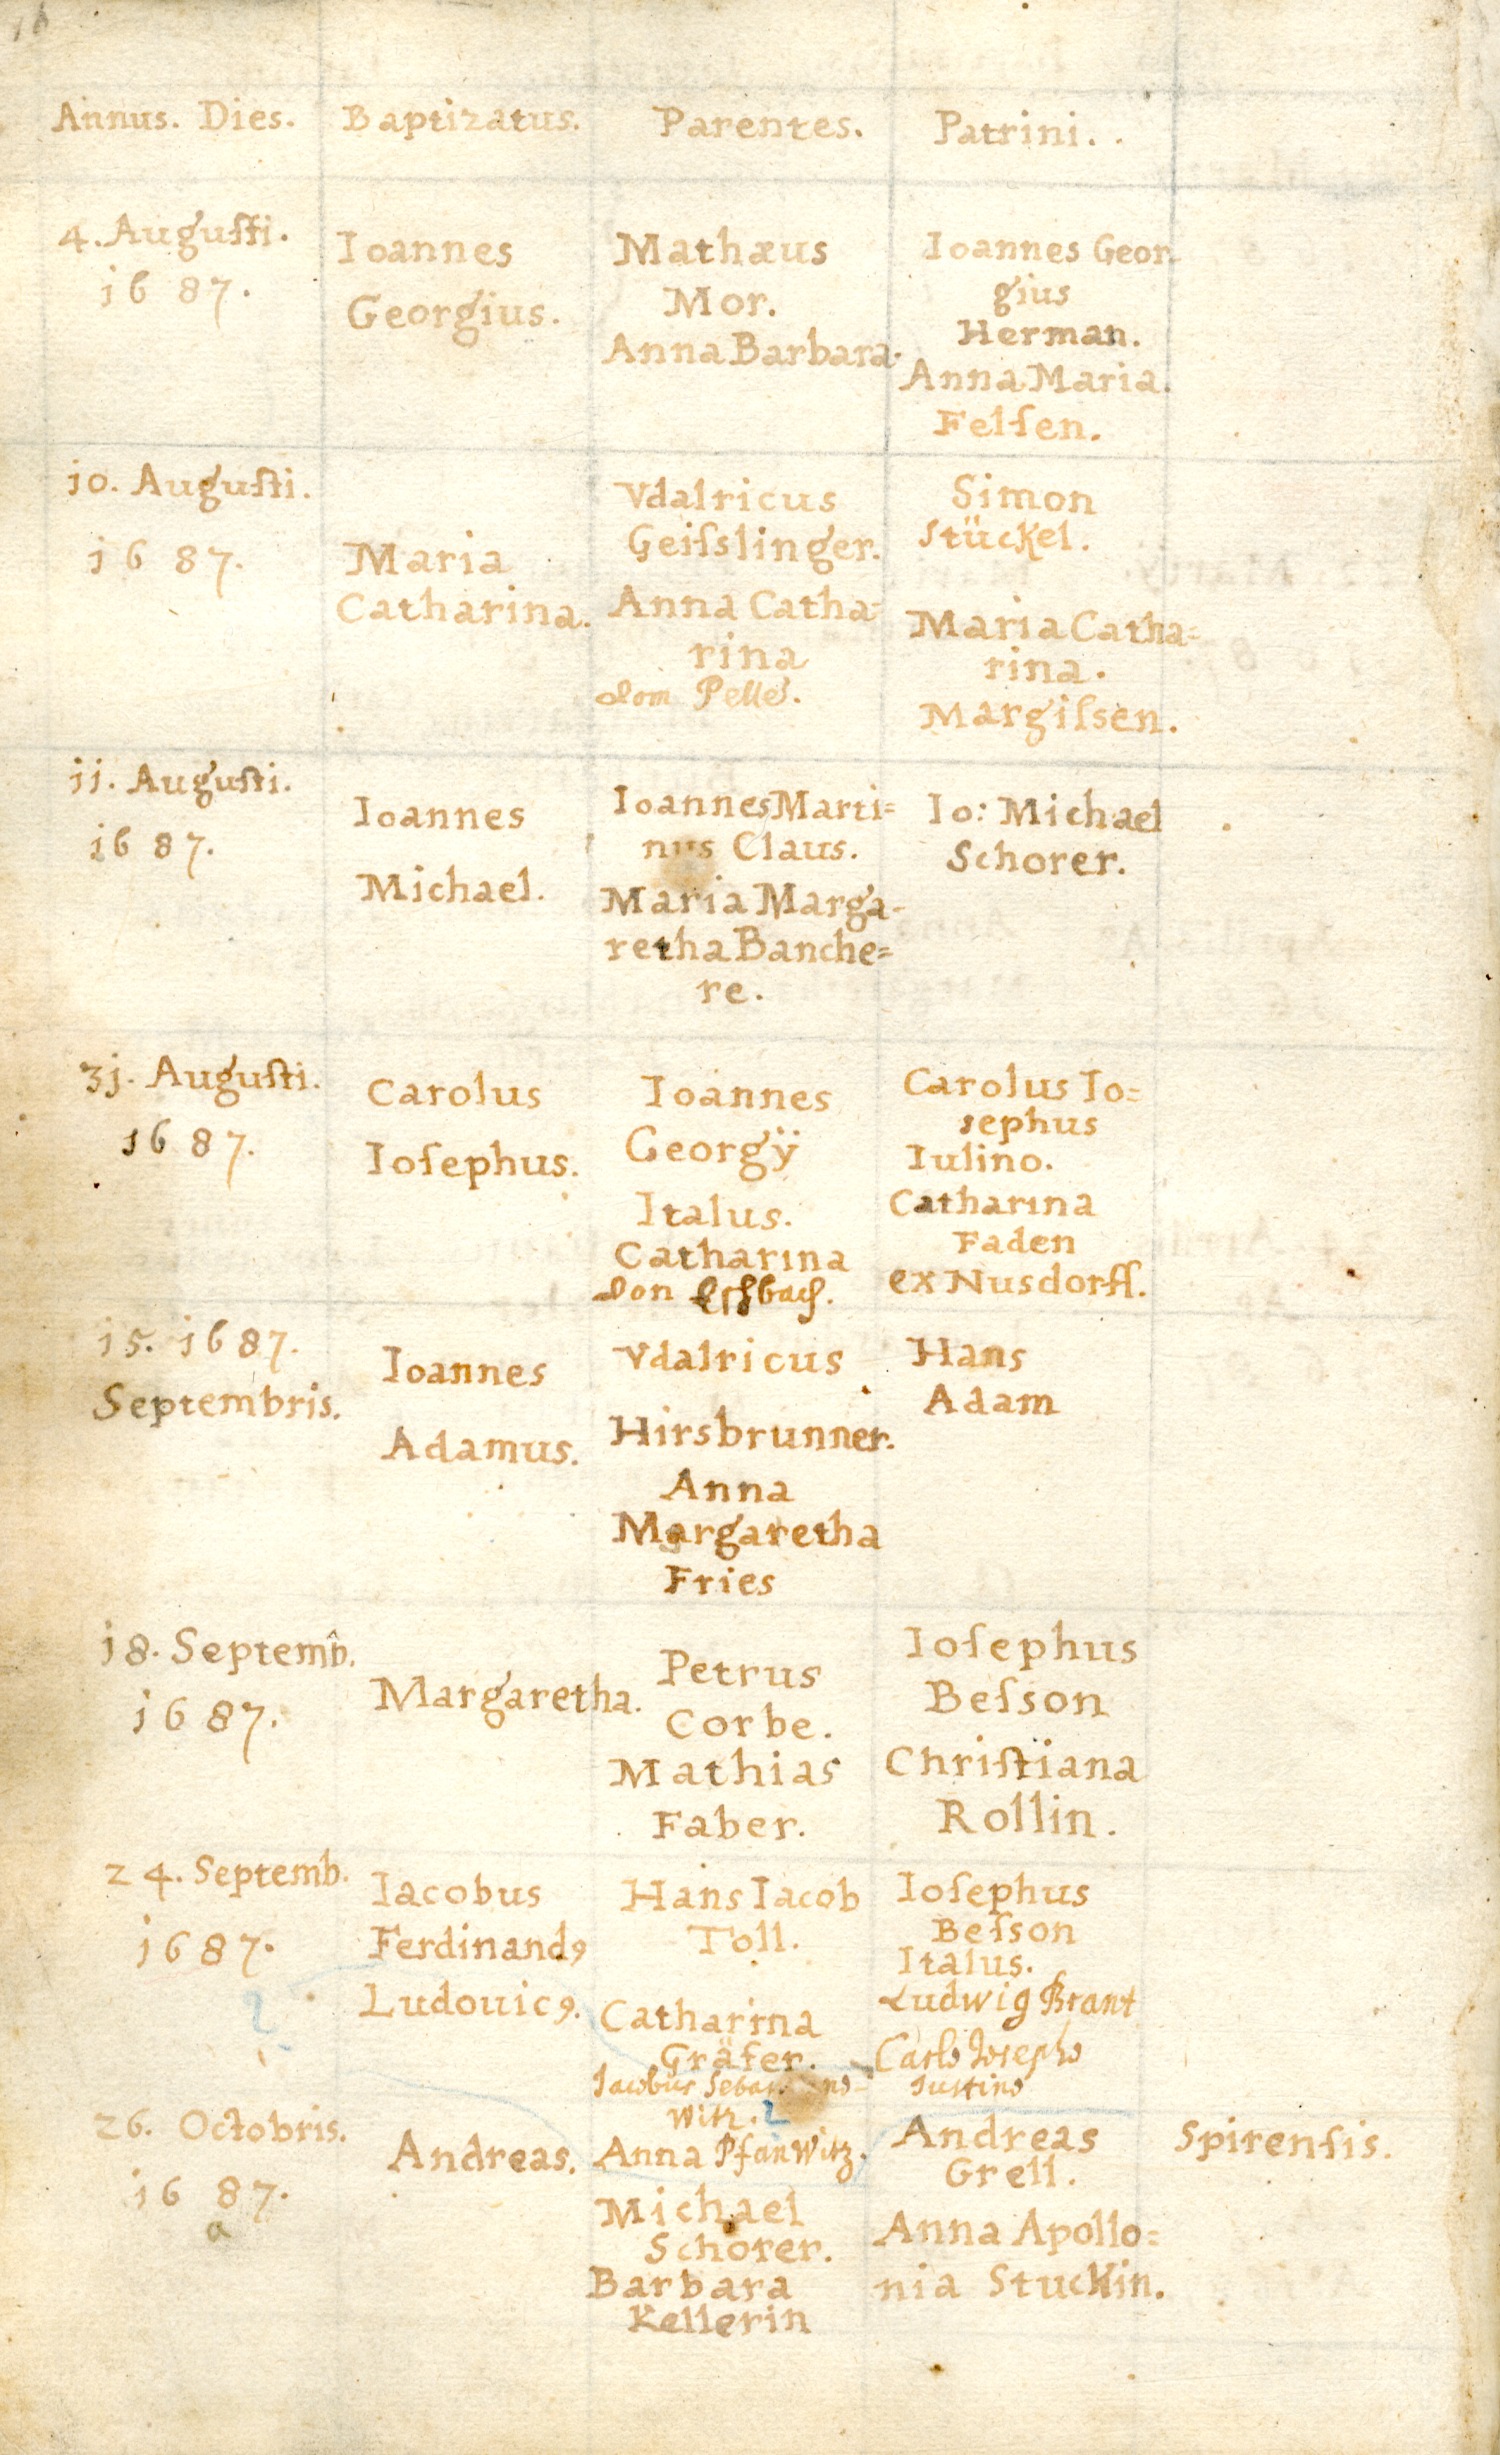 Annus. Dies.
Baptizatus.
Parentes.
Patrini.
4. Augusti.
1687.
Ioannes
Georgius.
Mathæus
Mor.
Anna Barbara.
Ioannes Geor-
gius
Herman.
Anna Maria.
Felsen.
10. Augusti.
1687.
Maria
Catharina.
Vdalricus
Geisslinger.
Anna Catha=
rina
Simon
Stückel.
Maria Catha=
rina.
Margissen.
11. Augusti.
1687.
Ioannes
Michael.
Ioannes Marti=
nus Claus.
Maria Marga-
retha Banche=
re.
Io: Michael
Schorer.
31. Augusti.
1687.
Carolus
Iosephus.
Ioannes
Georgÿ
Italus.
Catharina
von Eschbach.
Carolus Io=
sephus
Iulino.
Catharina
Faden
ex Nusdorff.
15. 1687.
Septembris.
Ioannes
Adamus.
Vdalricus
Hirsbrunner.
Anna
Margaretha
Fries
Hans
Adam
18. Septemb.
1687.
Margaretha.
Petrus
Corbe.
Mathias
Faber.
Iosephus
Besson
Christiana
Rollin.
24. Septemb.
1687.
Iacobus
Ferdinandꝯ
Ludouicꝯ.
Hans Iacob
Toll.
Catharina
Gräfer.
Iacobus
witz.
Anna Pfanwitz.
Iosephus
Besson
Italus.
Ludwig Brant
Carlo Iosepho
Iustino
26. Octobris.
1687.
a
Andreas.
Michael
Schorer.
Barbara
Kellerin
Andreas
Grell.
Anna Apollo=
nia Stuckin.
Spirensis.